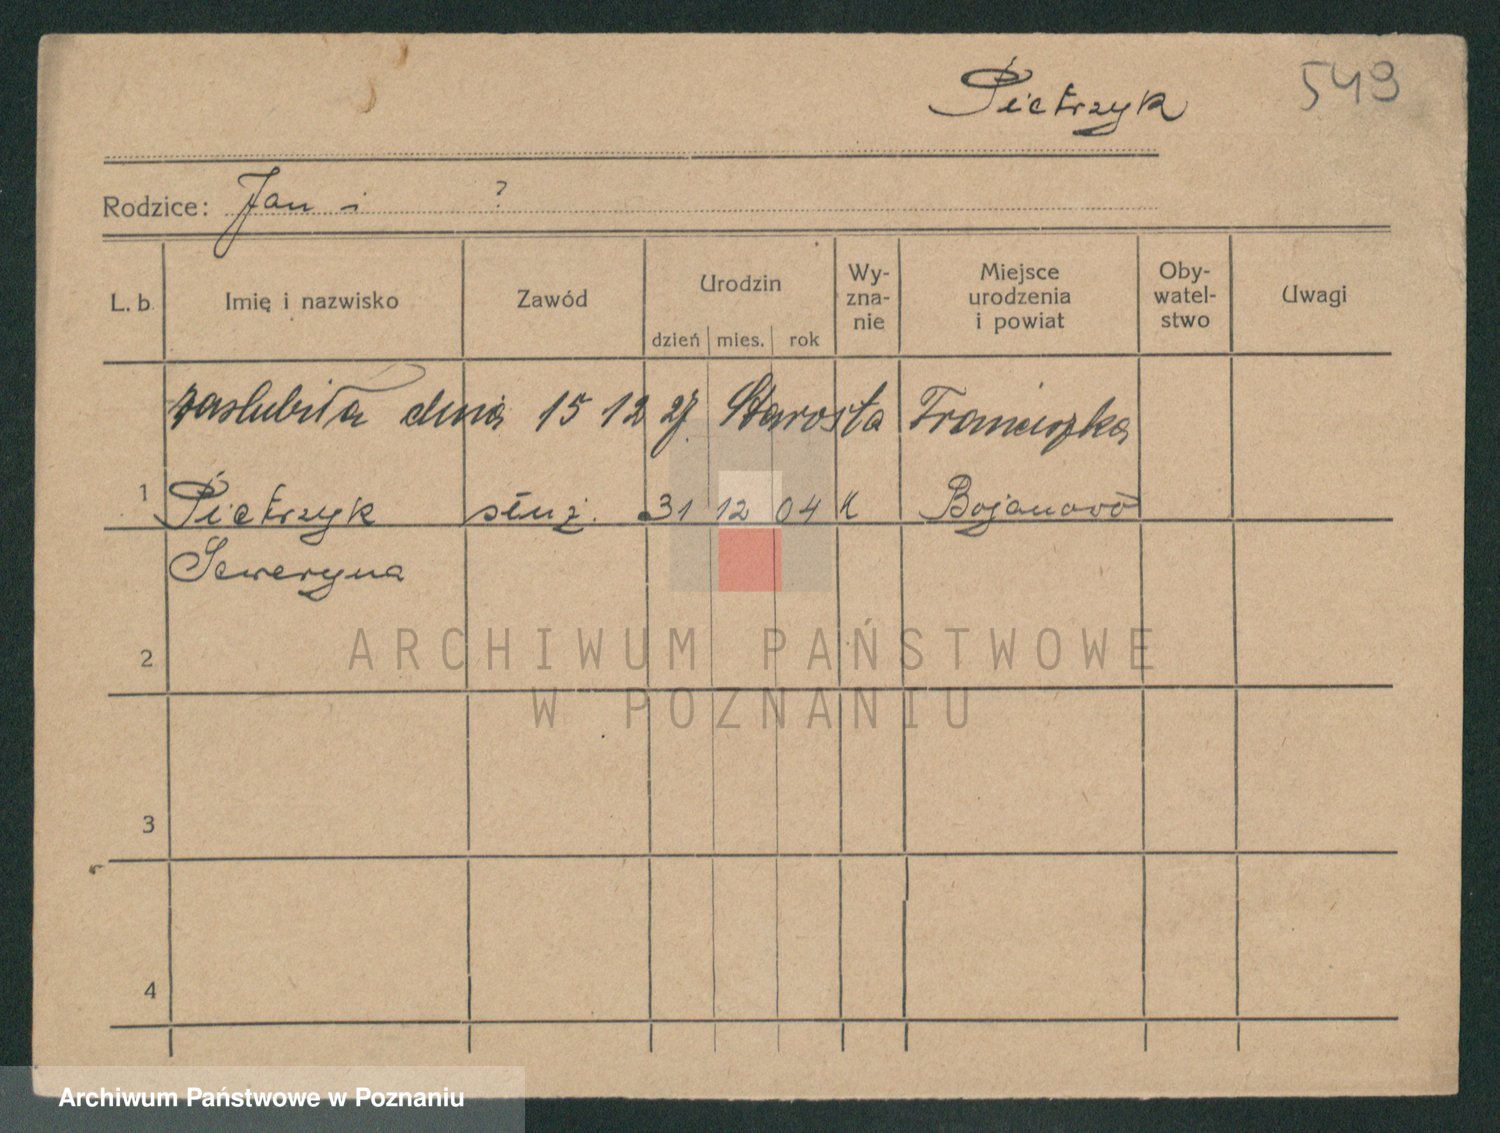 Pietrzyk 549
Rodzice: Jan i ?
L. b. Imię i nazwisko Zawód Urodzin Wy-zna-nie Miejsce urodzenia i powiat Oby-watel-stwo Uwagi
dzień mies. rok
zaslubiła dnia 15 12 27 Starosta Franciszka
1 Pietrzyk służ. 31 12 04 k Bojanowo
Seweryna
2
ARCHIWUM PAŃSTWOWE
W POZNANIU
3
4
Archiwum Państwowe w Poznaniu